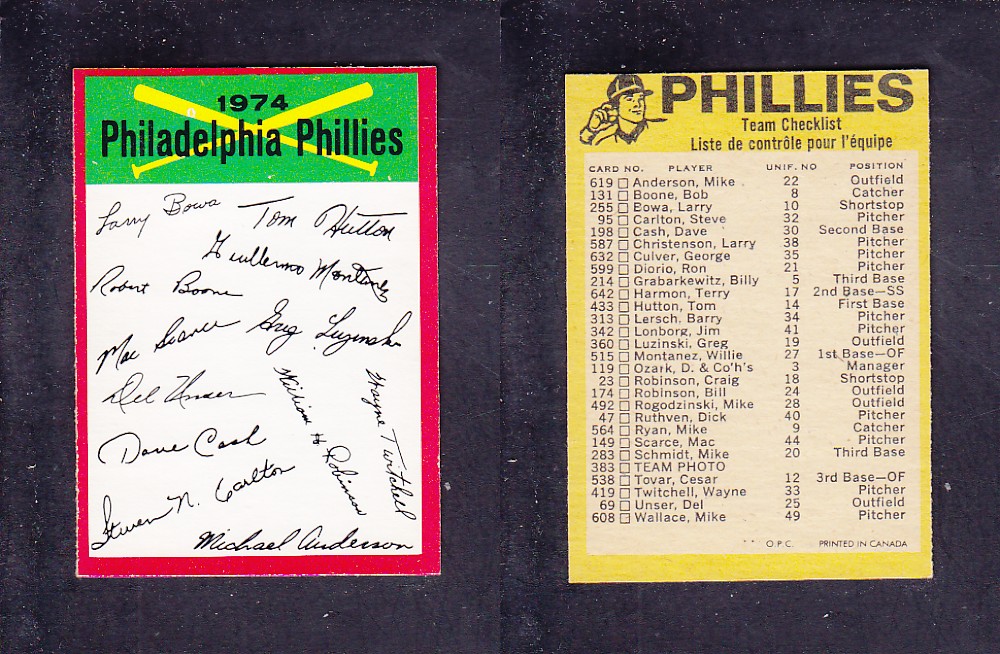 1974
Philadelphia Phillies
Larry Bowa
Tom Hutton
Guillermo Montanez
Robert Boone
Mac Scarce
Greg Luzinski
Del Unser
William H Robinson
Wayne Twitchell
Dave Cash
Steven N. Carlton
Michael Anderson
PHILLIES
Team Checklist
Liste de contrôle pour l'équipe
CARD NO. PLAYER UNIF. NO POSITION
619 Anderson, Mike 22 Outfield
131 Boone, Bob 8 Catcher
255 Bowa, Larry 10 Shortstop
95 Carlton, Steve 32 Pitcher
198 Cash, Dave 30 Second Base
587 Christenson, Larry 38 Pitcher
632 Culver, George 35 Pitcher
599 Diorio, Ron 21 Pitcher
214 Grabarkewitz, Billy 5 Third Base
642 Harmon, Terry 17 2nd Base—SS
433 Hutton, Tom 14 First Base
313 Lersch, Barry 34 Pitcher
342 Lonborg, Jim 41 Pitcher
360 Luzinski, Greg 19 Outfield
515 Montanez, Willie 27 1st Base—OF
119 Ozark, D. & Co'h's 3 Manager
23 Robinson, Craig 18 Shortstop
174 Robinson, Bill 24 Outfield
492 Rogodzinski, Mike 28 Outfield
47 Ruthven, Dick 40 Pitcher
564 Ryan, Mike 9 Catcher
149 Scarce, Mac 44 Pitcher
283 Schmidt, Mike 20 Third Base
383 TEAM PHOTO
538 Tovar, Cesar 12 3rd Base—OF
419 Twitchell, Wayne 33 Pitcher
69 Unser, Del 25 Outfield
608 Wallace, Mike 49 Pitcher
O.P.C. PRINTED IN CANADA